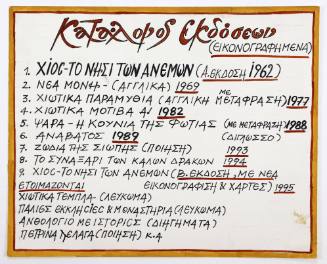 Κατάλογος εκδόσεων
(ΕΙΚΟΝΟΓΡΑΦΗΜΕΝΑ)
1. ΧΙΟΣ-ΤΟ ΝΗΣΙ ΤΩΝ ΑΝΕΜΩΝ (Α. ΕΚΔΟΣΗ 1962)
2. ΝΕΑ ΜΟΝΗ - (ΑΓΓΛΙΚΑ) 1969
3. ΧΙΩΤΙΚΑ ΠΑΡΑΜΥΘΙΑ (ΑΓΓΛΙΚΗ ΜΕ ΜΕΤΑΦΡΑΣΗ) 1977
4. ΧΙΩΤΙΚΑ ΜΟΤΙΒΑ ΑΙ 1982
5. ΨΑΡΑ - Η ΚΟΥΝΙΑ ΤΗΣ ΦΩΤΙΑΣ (ΜΕ ΜΕΤΑΦΡΑΣΗ) 1988
6. ΑΝΑΒΑΤΟΣ 1989 (ΔΙΓΛΩΣΣΟ)
7. ΖΩΔΙΑ ΤΗΣ ΣΙΩΠΗΣ (ΠΟΙΗΣΗ) 1993
8. ΤΟ ΣΥΝΑΞΑΡΙ ΤΩΝ ΚΑΛΩΝ ΔΡΑΚΩΝ 1994
9. ΧΙΟΣ-ΤΟ ΝΗΣΙ ΤΩΝ ΑΝΕΜΩΝ (Β. ΕΚΔΟΣΗ, ΜΕ ΝΕΑ
ΕΤΟΙΜΑΖΟΝΤΑΙ ΕΙΚΟΝΟΓΡΑΦΗΣΗ & ΧΑΡΤΕΣ) 1995
ΧΙΩΤΙΚΑ ΤΕΜΠΛΑ - (ΛΕΥΚΩΜΑ)
ΠΑΛΙΕΣ ΕΚΚΛΗΣΙΕΣ & ΜΕΝΑΣΤΗΡΙΑ (ΛΕΥΚΩΜΑ)
ΑΝΘΟΛΟΓΙΟ ΜΕ ΙΣΤΟΡΙΕΣ (ΔΙΗΓΗΜΑΤΑ)
ΠΕΤΡΙΝΑ ΠΕΛΑΓΑ (ΠΟΙΗΣΗ) κ.α